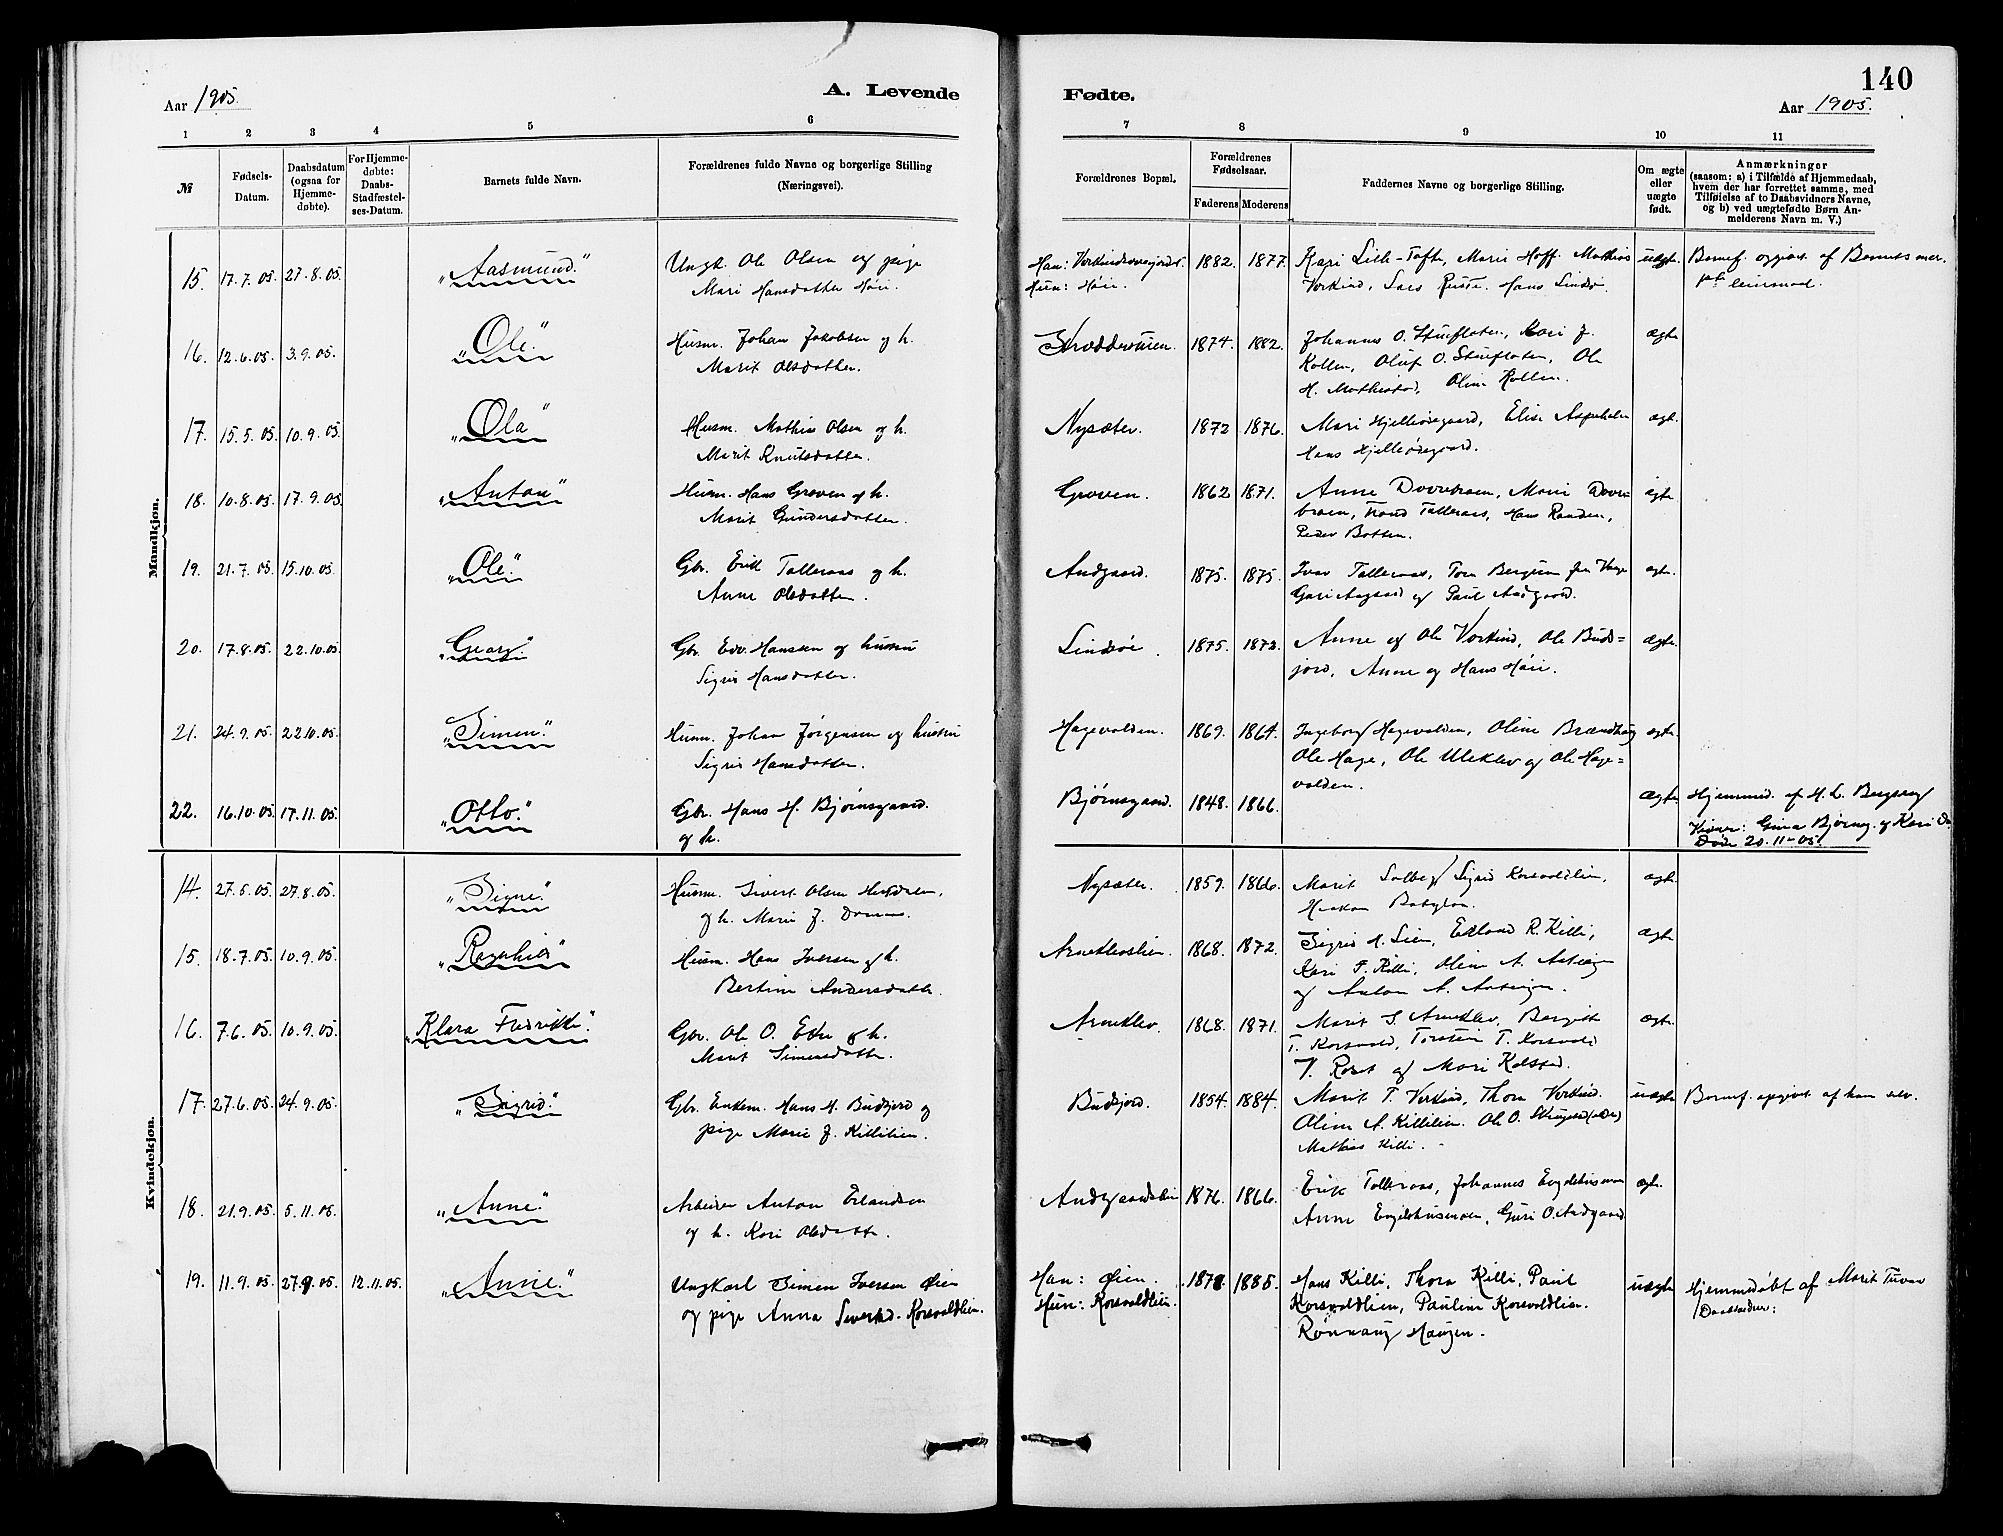 140
Aar 1905.
A. Levende
Fødte.
Aar 1905.
1 2 3 4 5 6
7 8 9 10 11
№
Fødsels-
Datum.
Daabsdatum
(ogsaa for
Hjemme-
døbte).
For Hjemme-
døbte:
Daabs-
Stadfæstel-
ses-Datum.
Barnets fulde Navn.
Forældrenes fulde Navne og borgerlige Stilling
(Næringsvei).
Forældrenes Bopæl.
Forældrenes
Fødselsaar.
Faderens Moderens
Faddernes Navne og borgerlige Stilling.
Om ægte
eller
uægte
født.
Anmærkninger
(saasom: a) i Tilfælde af Hjemmedaab,
hvem der har forrettet samme, med
Tilføielse af to Daabsvidners Navne,
og b) ved uægtefødte Børn An-
melderens Navn m. V.)
Mandkjøn.
15. 17.7.05. 27.8.05. "Aasmund." Ungk. Ole Olsen og pige
Mari Hansdatter Høri.
Han:
Hun: Høri. 1882. 1877. Kari Lille-Tofte, Marie Hoff. Mathias
Vorkind, Lars Ruste. Hans Lindsø. uægte. Barnef. opgivet af Barnets mor.
16. 12.6.05. 3.9.05. "Ole" Husm. Johan Jakobsen og h.
Marit Olsdatter.
1874. 1882. Johannes O. Stuefloten, Kari J.
Kollen, Oluf O. Stuefloten, Ole
H. Oline Kollen. ægte
17. 15.5.05. 10.9.05. "Ola" Husm. Mathias Olsen og h.
Marit Knutsdatter.
Nysæter. 1872 1876. Mari Hjelleøregaard, Elise
Hans Hjelleøregaard. ægt.
18. 10.8.05. 17.9.05. "Anton" Husm. Hans Groven og h.
Marit Gundersdatter.
Groven. 1862 1871. Anne Marie
Trond Talleraas, Hans Randen,
Peder Botten. ægte
19. 21.7.05. 15.10.05. "Ole." Gbr. Erik Talleraas og h.
Anne Olsdatter.
Andgaard. 1875. 1875. Ivar Talleraas, Tora fra Vaage
og Paul Andgaard. ægte.
20. 17.8.05. 22.10.05. "Georg." Gbr. Edv. Hanssen og hustru
Sigrid Hansdatter.
Lindsøe. 1875. 1872. Anne og Ole Vorkind, Ole Buds=
jord, Anne og Hans Høri. Ægte.
21. 24.9.05. 22.10.05. "Simen." Husm. Johan Jørgensen og hustru
Sigrid Hansdatter.
Hagevolden. 1869. 1864. Ingeborg Hagevolden, Oline Brændhaug
Ole Hage, Ole Uleklev og Ole Hage=
volden. ægte.
22. 16.10.05. 17.11.05. "Otto." Gbr. Hans H. Bjørnsgaard.
og h.
Bjørnsgaard. 1848. 1866. Ægte Hjemmed. af H. L.
Vidner: Gina Bjørnsg. og Kari
Døde 20.11-05.
Kvindekjøn.
14. 27.5.05. 27.8.05. "Signe." Husm. Sivert Olsen
og h. Marie J.
Nysæter. 1859. 1866. Marit Solberg Sigrid Korsvoldlien,
Haakon Babylon. ægt.
15. 18.7.05. 10.9.05. "Ragnhild" Husm. Hans Iversen og h.
Bertine Andersdatter.
1868. 1872. Sigrid H. Lien, Erland R. Killi,
Kari T. Killi, Oline A.
og Anton A. ægt.
16. 7.6.05. 10.9.05. "Klara Fredrikke." Gbr. Ole O. og h.
Marit Simensdatter.
Arneklev. 1868. 1871. Marit S. Arneklev, Bergitt
T. Korsvold, Torstein T. Korsvold
og Mari Kolstad. ægte
17. 27.6.05. 24.9.05. "Sigrid." Gbr. Enkem. Hans H. Budsjord og
pige Marie J. Killilien.
Budsjord. 1854. 1884. Marit T. Vorkind, Thora Vorkind.
Oline A. Killilien. Ole O.
Mathias Killi. uægte Barnef. opgivet af ham selv.
18. 21.9.05. 5.11.05. "Anne." Arbeider Anton Erlandsen
og h. Kari Olsdatter.
Andgaardslien 1876. 1866. Erik Talleraas, Johannes
Anne Guri O. Andgaard ægt.
19. 11.9.05. 27.9.05. 12.11.05. "Annie." Ungkarl Simen Iversen Øien
og pige Anna Sivertsd. Korsvoldlien.
Han: Øien.
Hun: Korsvoldlien. 1878 1885. Hans Killi, Thora Killi, Paul
Korsvoldlien, Pauline Korsvoldlien.
Rønnaug Haugen. uægte Hjemmedøbt af Marit Tuva